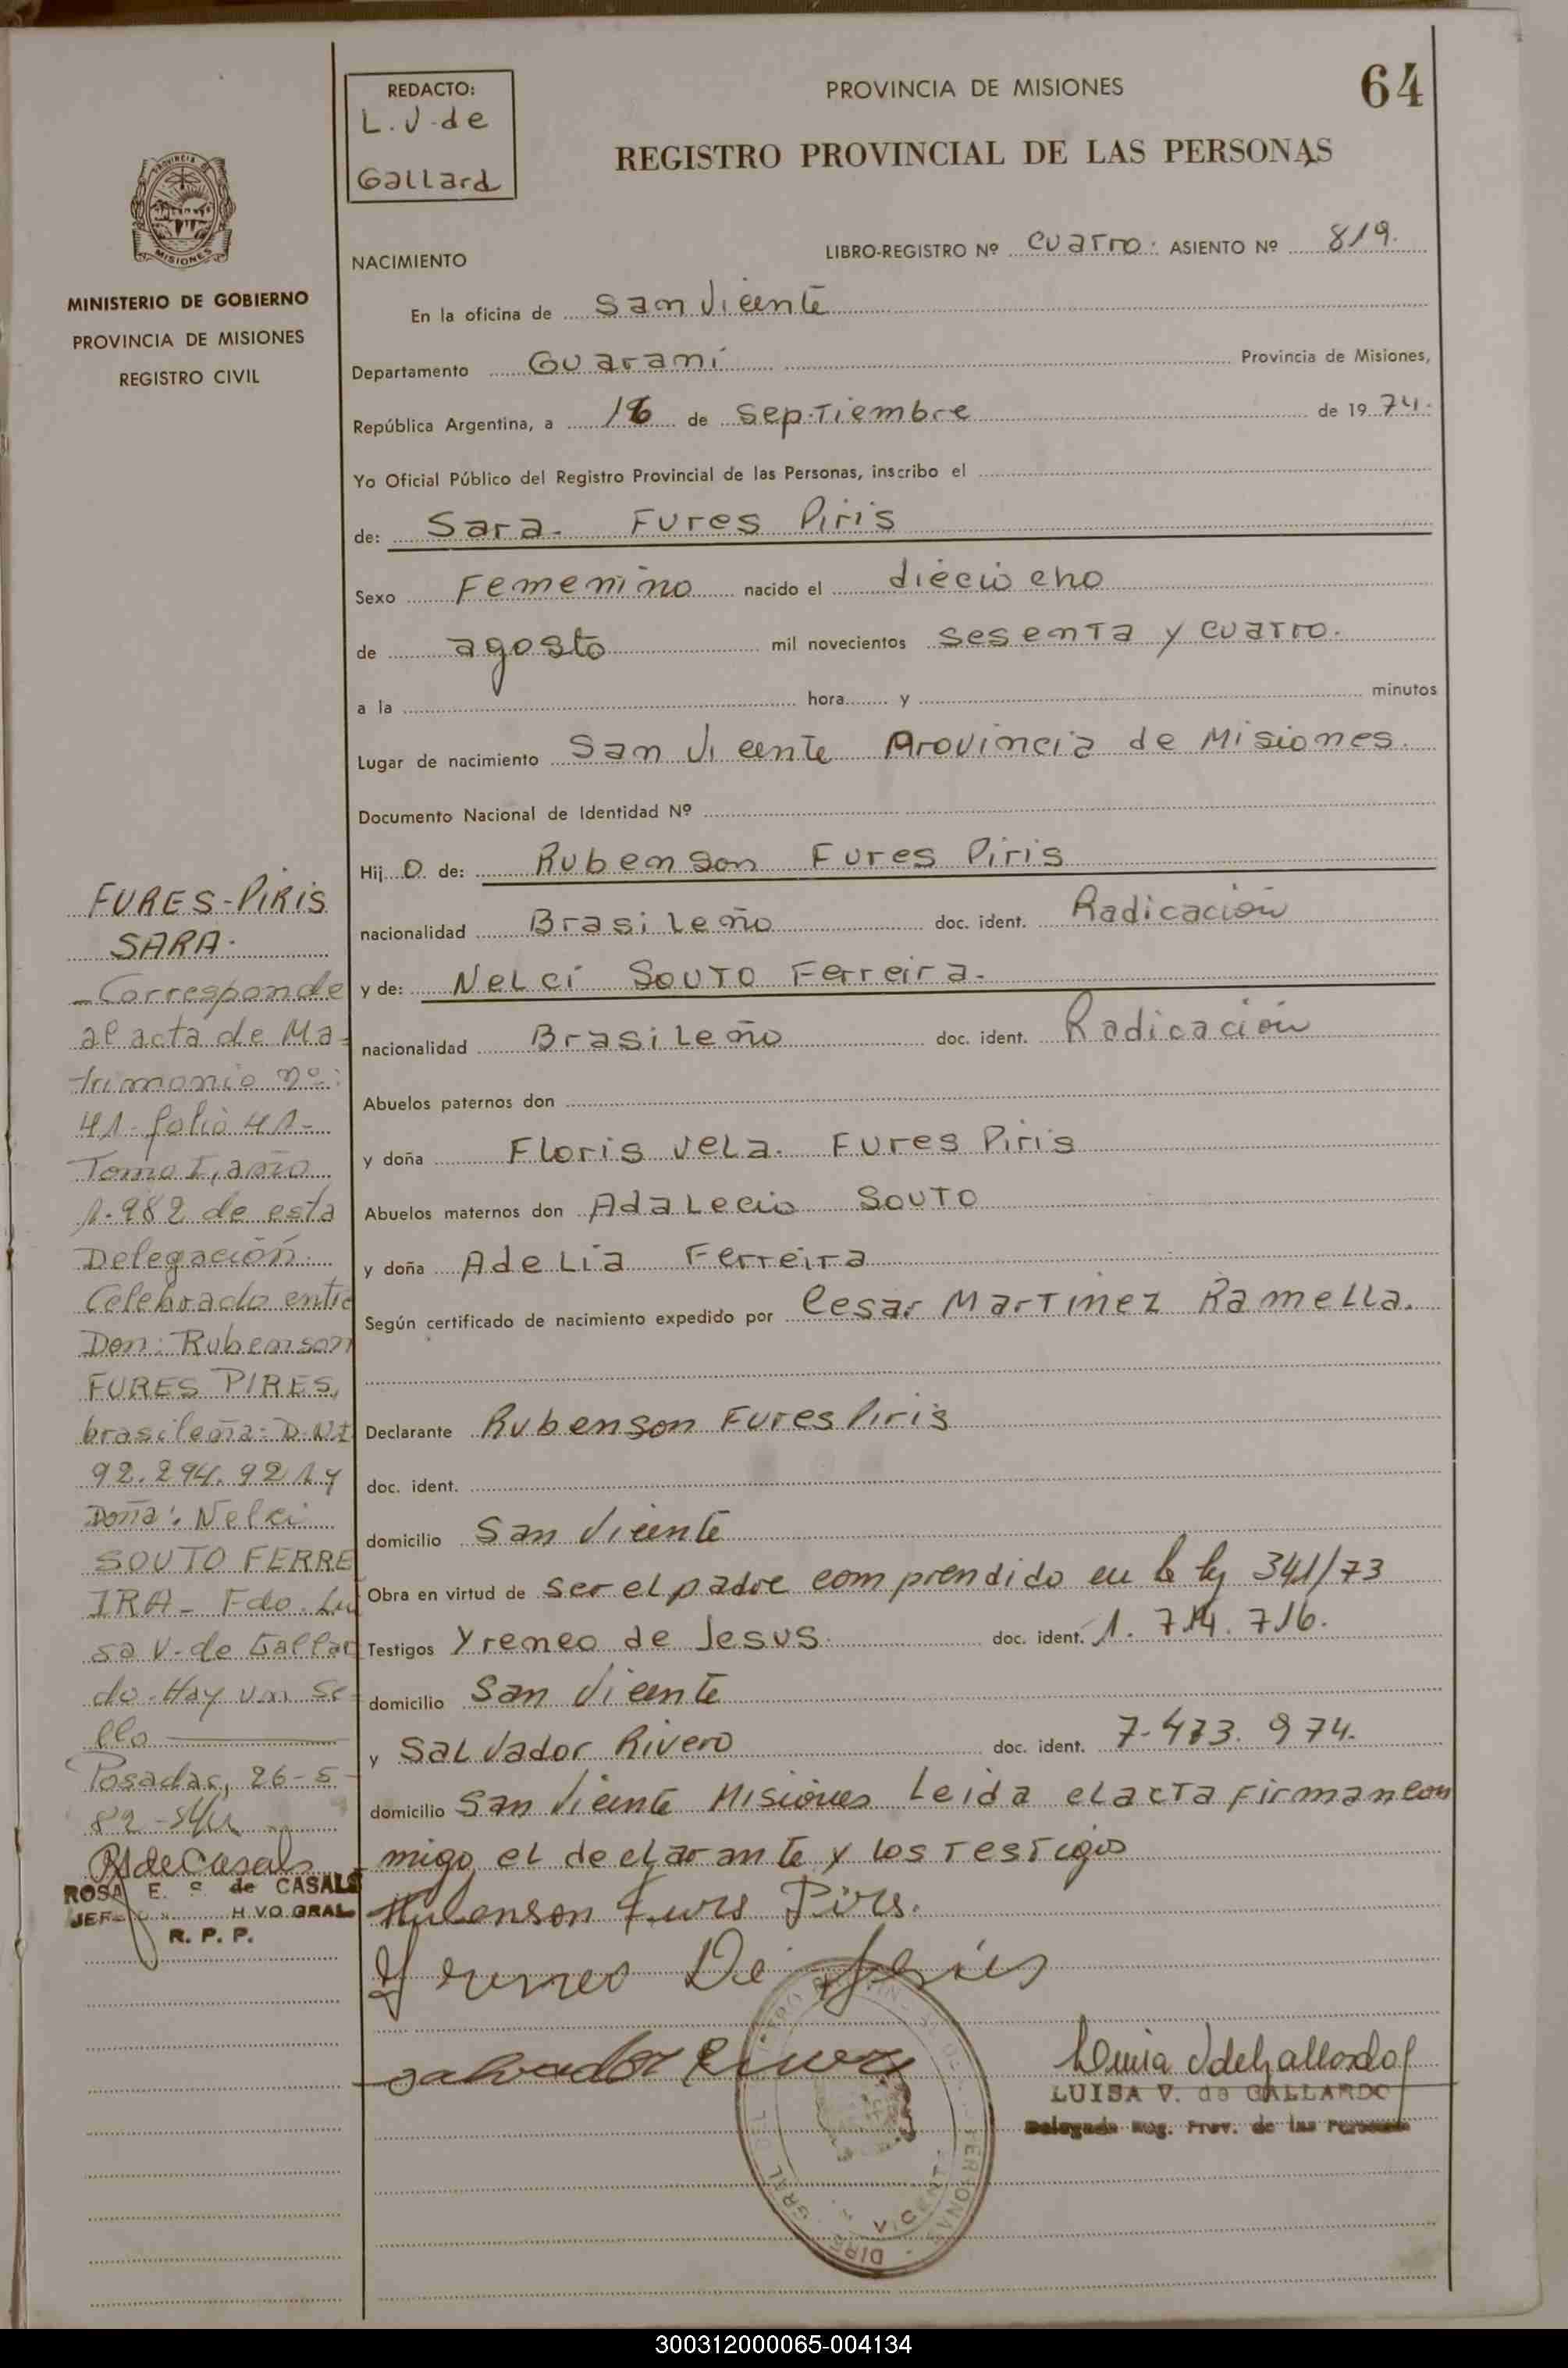 64
REDACTO:
L. V. de
Gallard
PROVINCIA DE MISIONES
REGISTRO PROVINCIAL DE LAS PERSONAS
PROVINCIA DE
MISIONES
MINISTERIO DE GOBIERNO
PROVINCIA DE MISIONES
REGISTRO CIVIL
NACIMIENTO
LIBRO-REGISTRO Nº cuatro. ASIENTO Nº 819.
En la oficina de San Vicente
Departamento Guaraní Provincia de Misiones,
República Argentina, a 16 de septiembre de 19 74.
Yo Oficial Público del Registro Provincial de las Personas, inscribo el
de: Sara. Fures Piris
Sexo Femenino nacido el dieciocho
de agosto mil novecientos sesenta y cuatro.
a la hora y minutos
Lugar de nacimiento San Vicente Provincia de Misiones.
Documento Nacional de Identidad Nº
Hij o de: Rubenson Fures Piris
nacionalidad Brasileño doc. ident. Radicación
y de: Nelci Souto Ferreira.
nacionalidad Brasileño doc. ident. Radicación
Abuelos paternos don
y doña Floris vela. Fures Piris
Abuelos maternos don Adalecio Souto
y doña Adelia Ferreira
Según certificado de nacimiento expedido por Cesar Martinez Ramella.
Declarante Rubenson Fures Piris
doc. ident.
domicilio San Vicente
Obra en virtud de ser el padre comprendido en la ley 341/73
Testigos Yreneo de Jesus. doc. ident. 1.714.716.
domicilio San Vicente
y Salvador Rivero doc. ident. 7.473.974.
domicilio San Vicente Misiones Leida el acta firman con
migo el declarante y los testigos
Rubenson Furs Pirs.
Yreneo De Jesús
Salvador Rivero
Luisa V de Gallardo
LUISA V. de GALLARDO
Delegada Reg. Prov. de las Personas
FURES-PIRIS
SARA.
- Corresponde
al acta de Ma-
trimonio nº:
41- folio 41-
Tomo I, año
1.982 de esta
Delegación.
Celebrado entre
Don: Rubenson
FURES PIRES,
brasileña: D.N.I
92.294.921 y
Doña: Nelci
SOUTO FERRE
IRA- Fdo. Lui
sa V. de Gallar
do. Hay un Se-
llo
Posadas, 26-5-
82
R de Casals
ROSA E. S. de CASALS
R. P. P.
300312000065-004134